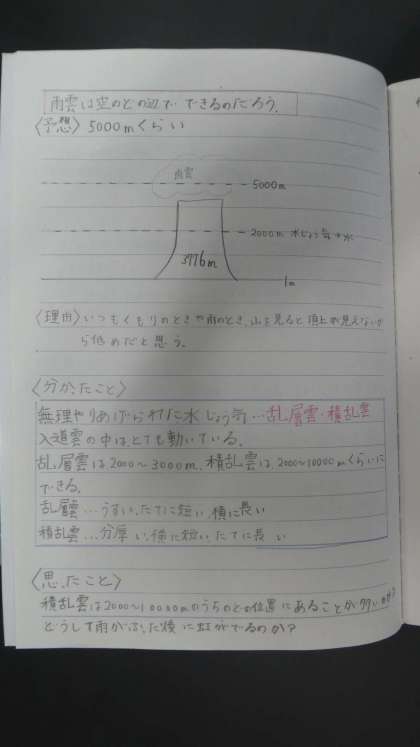 雨雲は空のどの辺で できるのだろう。
〈予想〉 5000mくらい
雨雲
5000m
2000m 水じょう気→水
3776m
1m
〈理由〉いつもくもりのときや雨のとき、山を見ると頂上が見えないか
ら低めだと思う。
〈分かったこと〉
無理やりあげられた水じょう気…乱層雲・積乱雲
入道雲の中は、とても動いている。
乱層雲は2000〜3000m、積乱雲は、2000〜10000mくらいに
できる。
乱層雲…うすい、たてに短い、横に長い
積乱雲…分厚い、横に短い、たてに長い
〈思ったこと〉
積乱雲は2000〜10000mのうちのどの位置にあることが多いのか?
どうして雨がふった後に虹がでるのか?